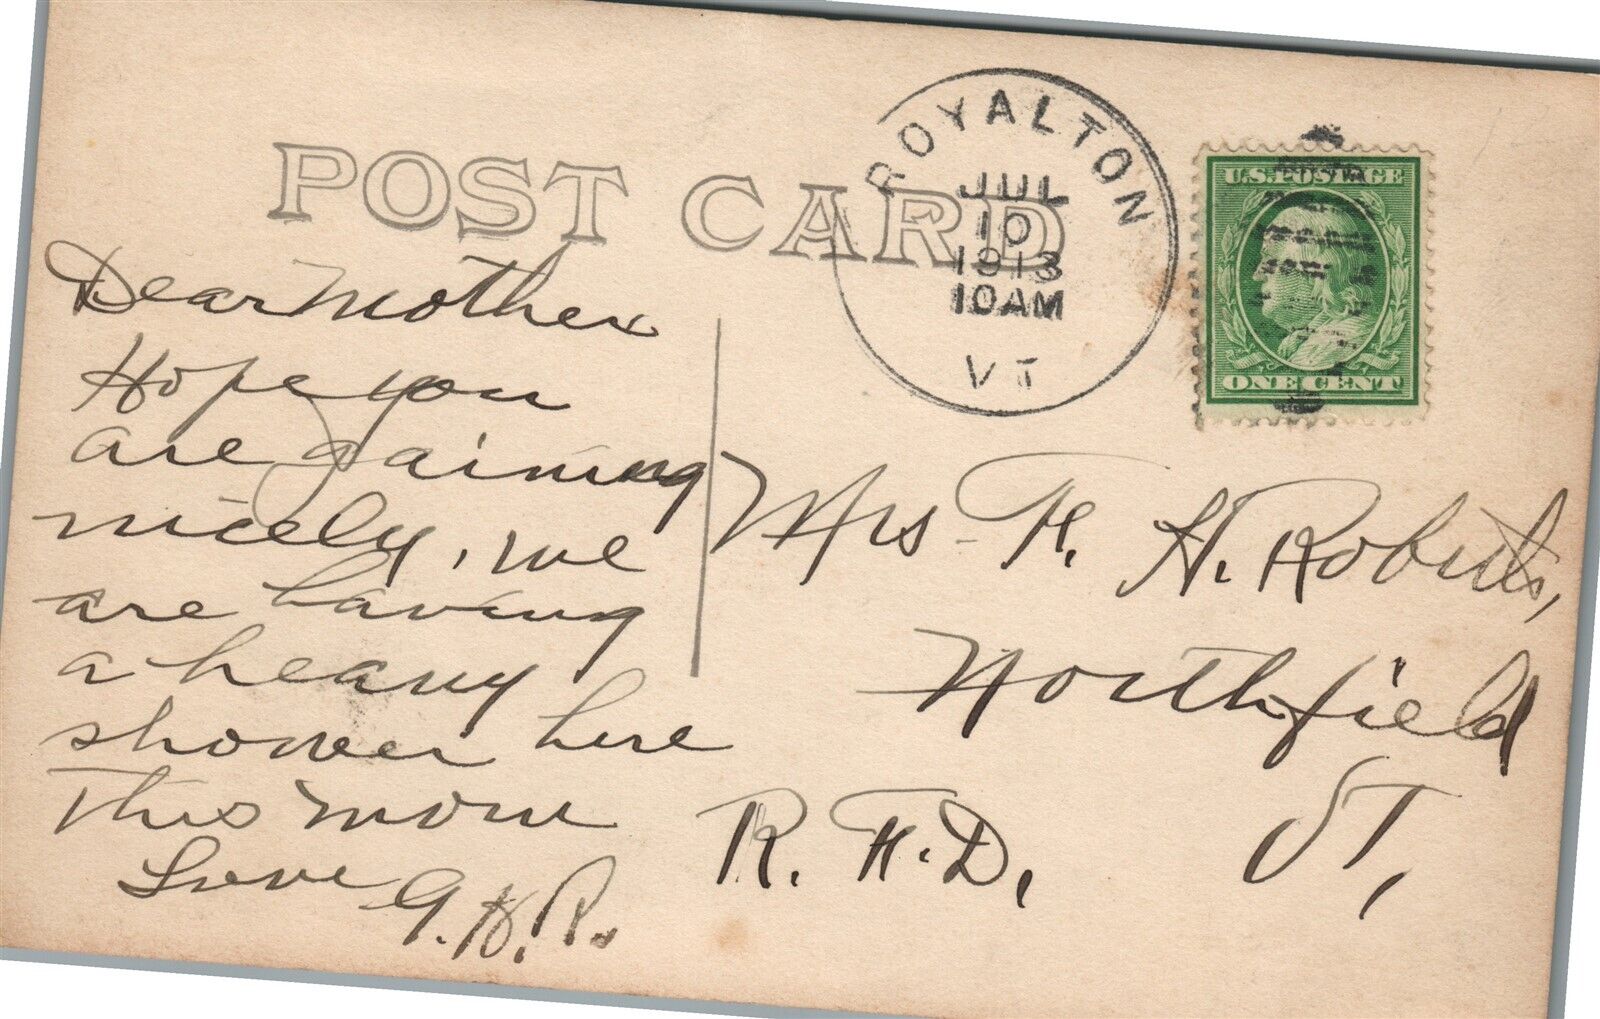 POST CARD
ROYALTON
JUL
10
1913
10AM
VT
U.S. POSTAGE
ONE CENT
Dear Mother
Hope you
are gaining
nicely, we
are having
a heavy
shower here
This morn
Love G.H.R.
Mrs F. H. Roberts,
Northfield
R.F.D. VT,